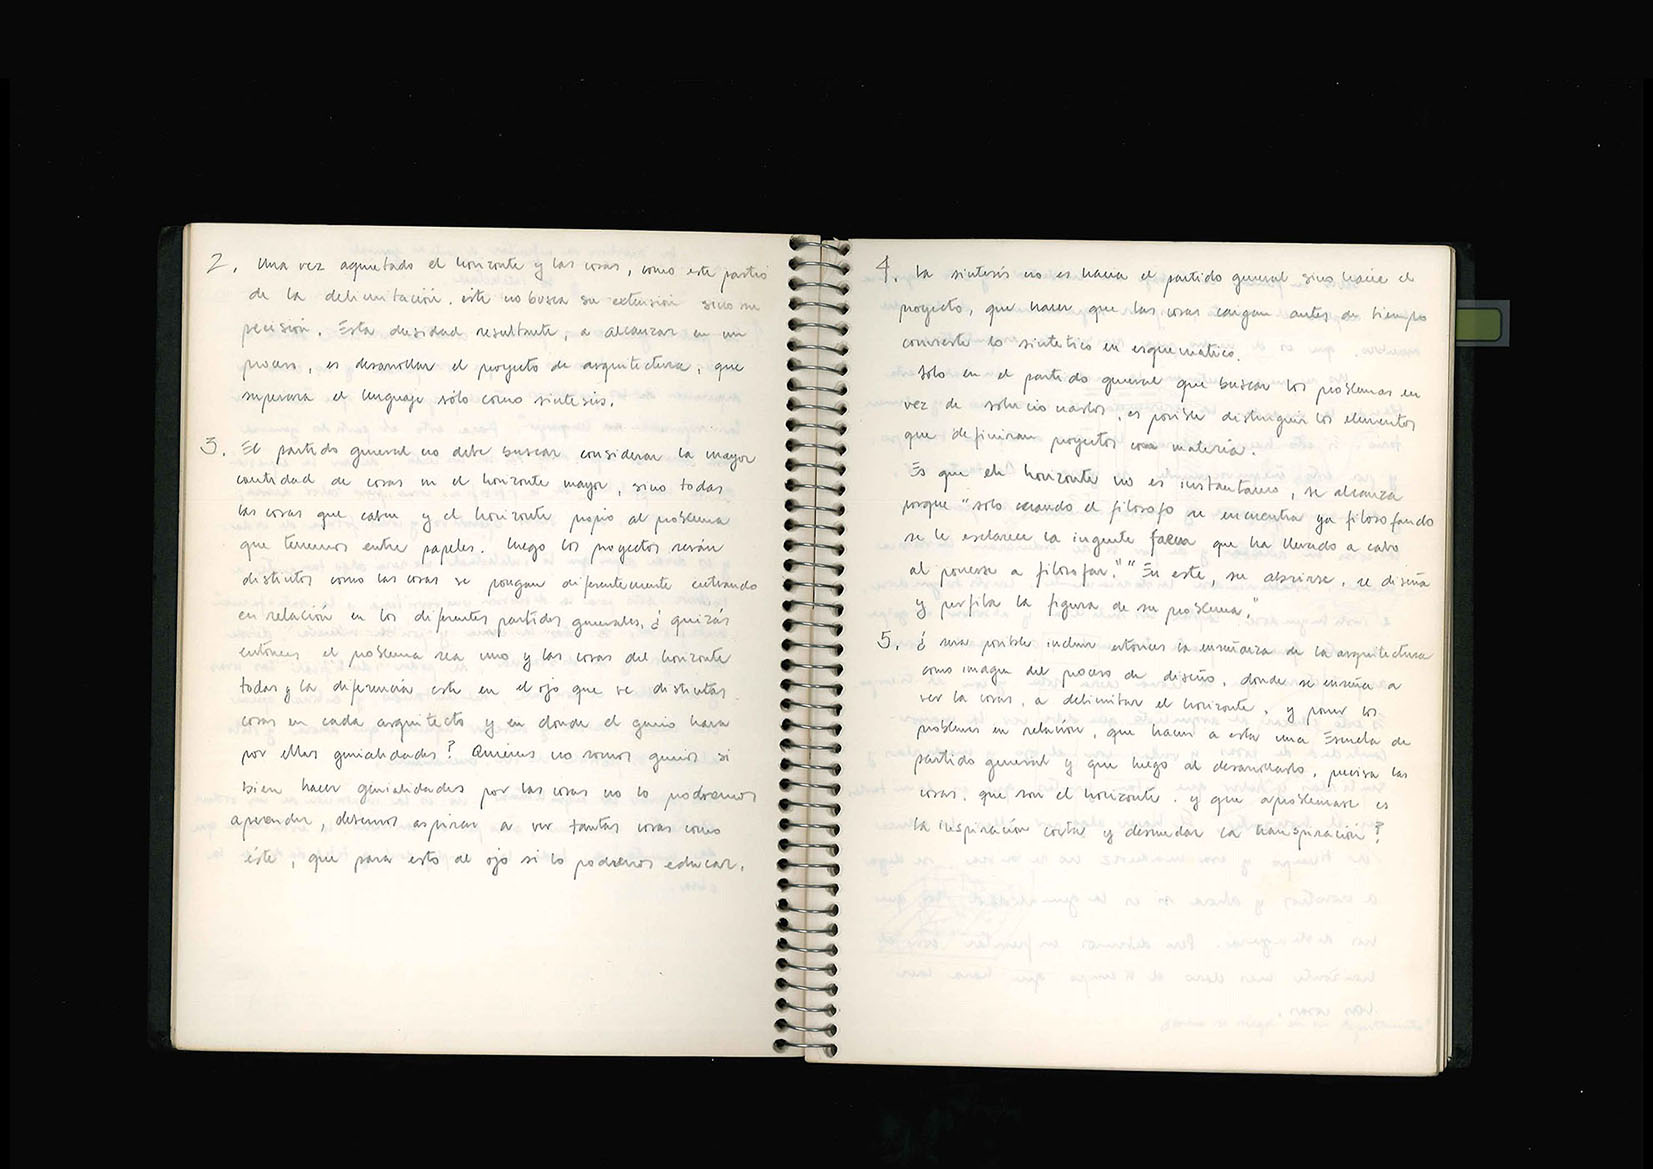 2. Una vez aquietado el horizonte y las cosas, como este partió
de la delimitación, este no busca su extensión sino su
precisión. Esta densidad resultante, a alcanzar en un
proceso, es desarrollar el proyecto de arquitectura, que
superara el lenguaje sólo como síntesis.
3. El partido general no debe buscar considerar la mayor
cantidad de cosas en el horizonte mayor, sino todas
las cosas que caben y el horizonte propio al problema
que tenemos entre papeles. Luego los proyectos serán
distintos como las cosas se pongan diferentemente entrando
en relación en los diferentes partidos generales, ¿ quizás
entonces el problema sea uno y las cosas del horizonte
todas y la diferencia este en el ojo que ve distintas
cosas en cada arquitecto y en donde el genio hara
por ellas genialidades? Quienes no somos genios si
bien hacer genialidades por las cosas no lo podremos
aprender, debemos aspirar a ver tantas cosas como
éste, que para esto de ojo si lo podremos educar.
4. La síntesis no es hacia el partido general sino hacia el
proyecto, que hacer que las cosas caigan antes de tiempo
convierte lo sintetico en esquematico.
Solo en el partido general que buscar los problemas en
vez de solucionarlos, es posible distinguir los elementos
que definiran proyectos con materia.
Es que el horizonte no es instantaneo, se alcanza
porque "solo cuando el filosofo se encuentra ya filosofando
se le esclarece la ingente faena que ha llevado a cabo
al ponerse a filosofar." "En este, su abrirse, se diseña
y perfila la figura de su problema."
5. ¿ sera posible incluir entonces la enseñanza de la arquitectura
como imagen del proceso de diseño, donde se enseña a
ver la cosas, a delimitar el horizonte, y poner los
problemas en relación, que hacen a esta una Escuela de
partido general y que luego al desarrollarlo, precisa las
cosas, que son el horizonte, y que aproblemarse es
la inspiración corta y desnudar la transpiración?